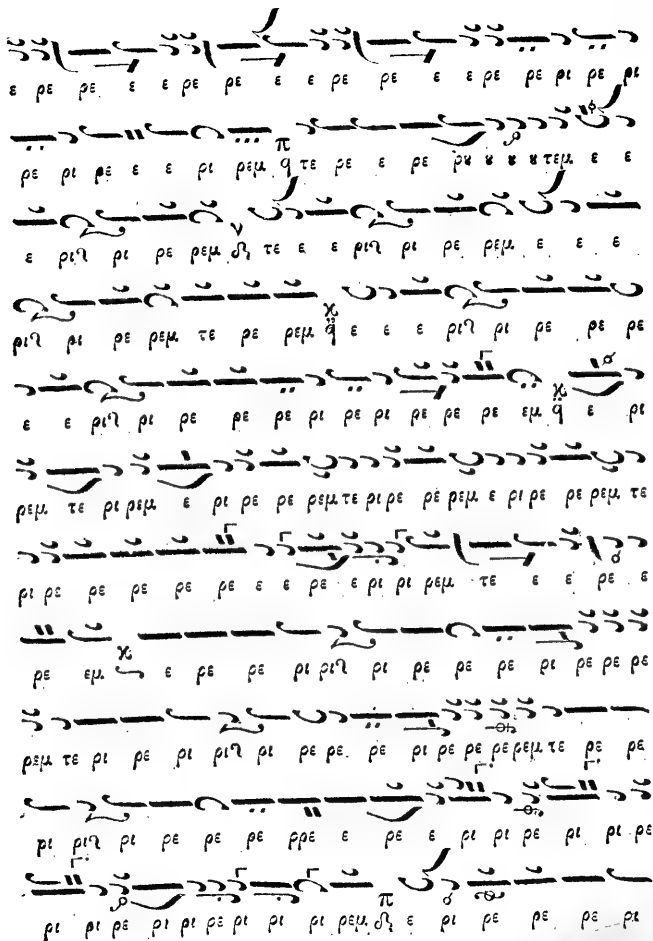 ε ρε ρε ε ε ρε ρε ε ε ρε ρε ε ε ρε ρε ρι ρε ρι
ρε ρι ρε ε ε ρι ρεμ τε ρε ε ρε ρȣ ȣ ȣ ȣ τεμ ε ε
ε ρι ρι ρε ρεμ τε ε ε ρι ρι ρε ρεμ ε ε ε
ρι ρι ρε ρεμ τε ρε ρεμ ε ε ε ρι ρι ρε ρε ρε
ε ε ρι ρι ρε ρε ρε ρι ρε ρι ρε ρε ρε εμ ε ρι
ρεμ τε ρι ρεμ ε ρι ρε ρε ρεμ τε ρι ρε ρε ρεμ ε ρι ρε ρε ρεμ τε
ρι ρε ρε ρε ρε ρε ε ε ρε ε ρι ρι ρεμ τε ε ε ρε ε
ρε εμ ε ρε ρε ρι ρι ρι ρε ρε ρε ρι ρε ρε ρε
ρεμ τε ρι ρε ρι ρι ρι ρε ρε ρε ρι ρε ρε ρε ρεμ τε ρε ρε
ρι ρι ρι ρε ρε ρε ρρε ε ρε ε ρι ρι ρε ρι ρι ρε
ρι ρι ρε ρι ρι ρε ρι ρι ρι ρεμ ε ρι ρε ρε ρε ρι